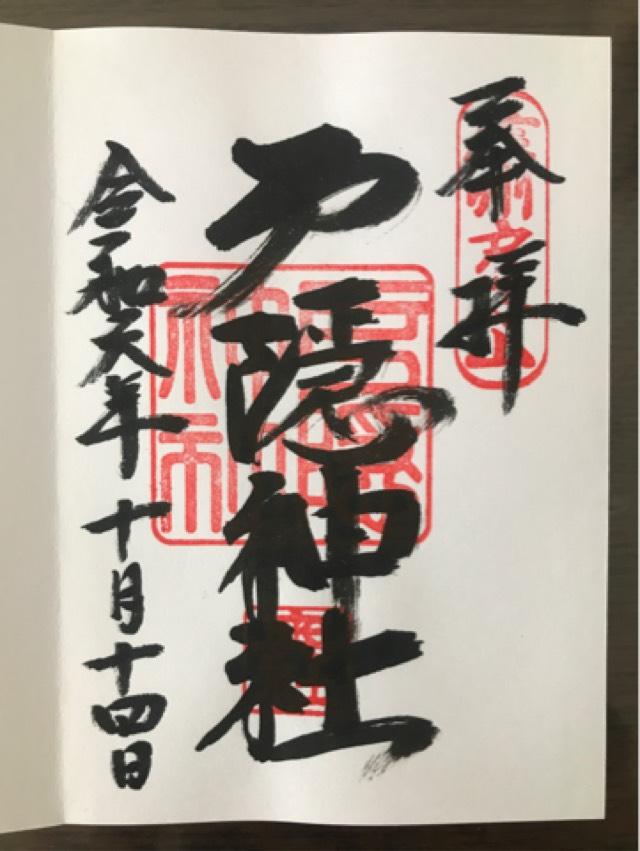 奉拝
戸隠神社
令和六年十月十四日